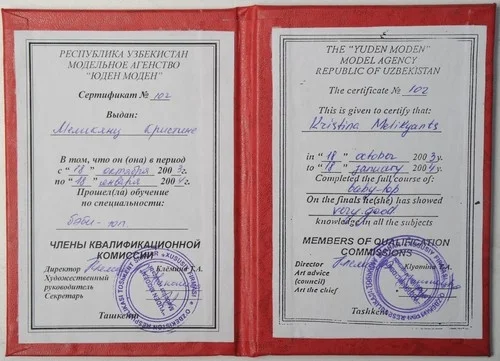 РЕСПУБЛИКА УЗБЕКИСТАН
МОДЕЛЬНОЕ АГЕНСТВО
"ЮДЕН МОДЕН"
Сертификат № 102
Выдан:
Меликянц Кристине
В том, что он (она) в период
с "18" октября 2003г.
по "18" января 2004г.
Прошел(ла) обучение
по специальности:
бэби-топ.
ЧЛЕНЫ КВАЛИФИКАЦИОННОЙ
КОМИССИИ
Директор
Художественный
руководитель
Секретарь
Ташкент
THE "YUDEN MODEN"
MODEL AGENCY
REPUBLIC OF UZBEKISTAN
The certificate № 102
This is given to certify that:
Kristina Melikyants
in "18" october 2003y.
to "18" january 2004y.
Completed the full course of:
baby-top
On the finals he(she) has showed
very good
knowledge in all the subjects
MEMBERS OF QUALIFICATION
COMMISSIONS
Director
Art advice
(council)
Art the chief
Tashkent